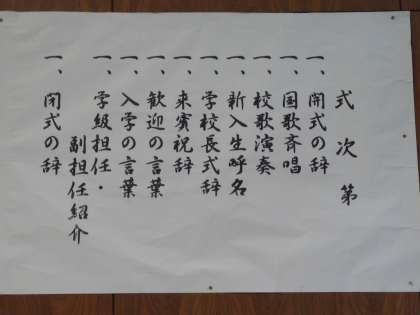 式次第
一、開式の辞
一、国歌斉唱
一、校歌演奏
一、新入生呼名
一、学校長式辞
一、来賓祝辞
一、歓迎の言葉
一、入学の言葉
一、学級担任・
副担任紹介
一、閉式の辞